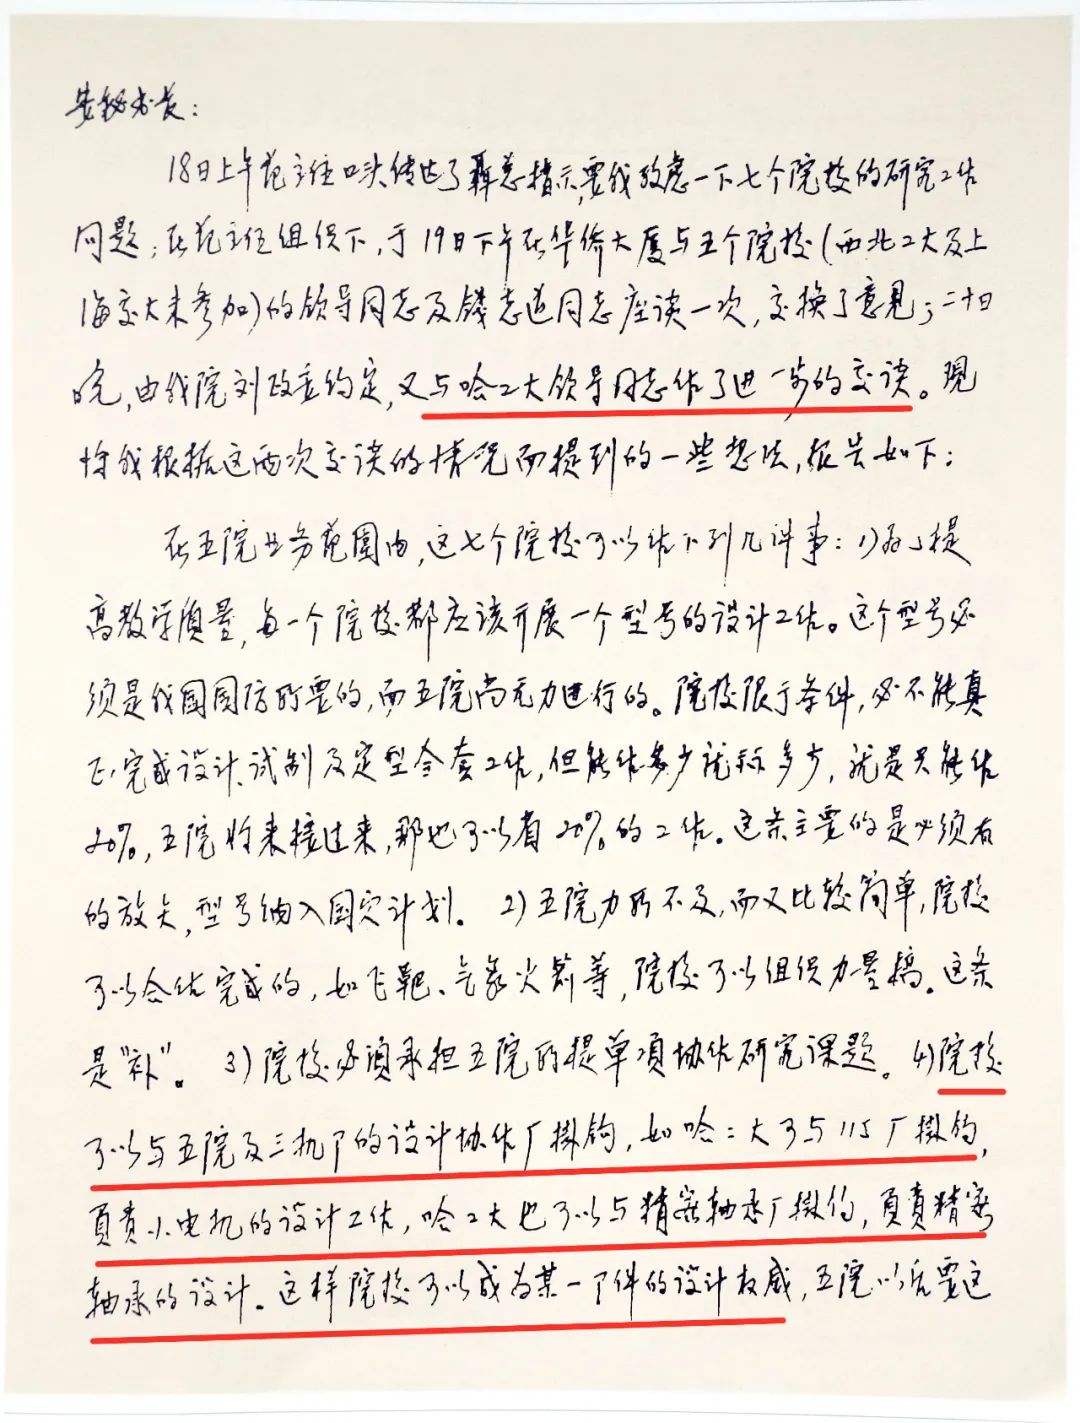 安秘书长：
18日上午范主任口头传达了聂总指示，要我考虑一下七个院校的研究工作
问题；在范主任组织下，于19日下午在华侨大厦与五个院校（西北工大及上
海交大未参加）的领导同志及钱志道同志座谈一次，交换了意见；二十日
晚，由我院刘政委约定，又与哈工大领导同志作了进一步的交谈。现
将我根据这两次交谈的情况而提到的一些想法，报告如下：
在五院业务范围内，这七个院校可以作下列几件事：1）为了提
高教学质量，每一个院校都应该开展一个型号的设计工作。这个型号必
须是我國国防所要的，而五院尚无力进行的。院校限于条件，必不能真
正完成设计、试制及定型全套工作，但能作多少就算多少，就是只能作
20%，五院将来接过来，那也可以省20%的工作。这条主要的是必须有
的放矢，型号纳入国家计划。 2）五院力所不及，而又比较简单，院校
可以合作完成的，如飞靶、气象火箭等，院校可以组织力量搞。这条
是"补"。 3）院校必须承担五院所提单项协作研究课题。 4）院校
可以与五院及三机厂的设计协作厂掛钩，如哈工大可与115厂掛钩，
負責小电机的设计工作，哈工大也可以与精密轴承厂掛钩，負責精密
轴承的设计。这样院校可以成为某一个件的设计权威，五院以后要这